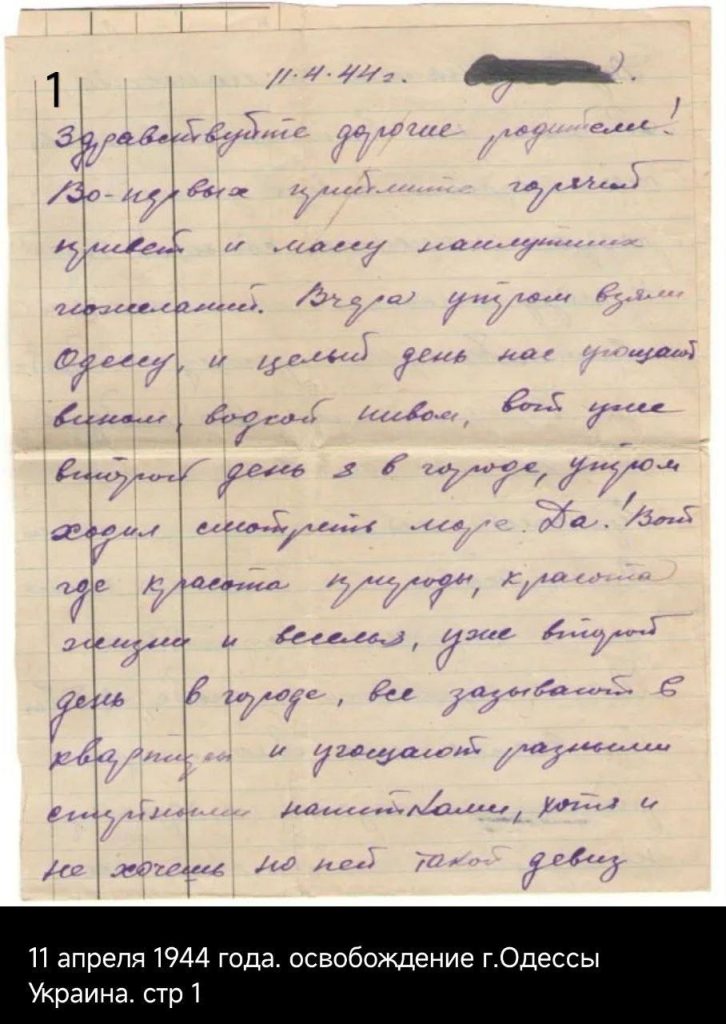 1
11.4.44г. г.
Здравствуйте дорогие родители!
Во-первых примите горячий
привет и массу наилутших
пожеланий. Вчера утром взяли
Одессу, и целый день нас угощают
вином, водкой пивом, вот уже
второй день я в городе, утром
ходил смотреть море. Да! Вот
где красота природы, красота
жизни и веселья, уже второй
день в городе, все зазывают в
квартиры и угощают разными
спиртными напитками, хотя и
не хочешь но пей такой девиз
11 апреля 1944 года. освобождение г.Одессы
Украина. стр 1